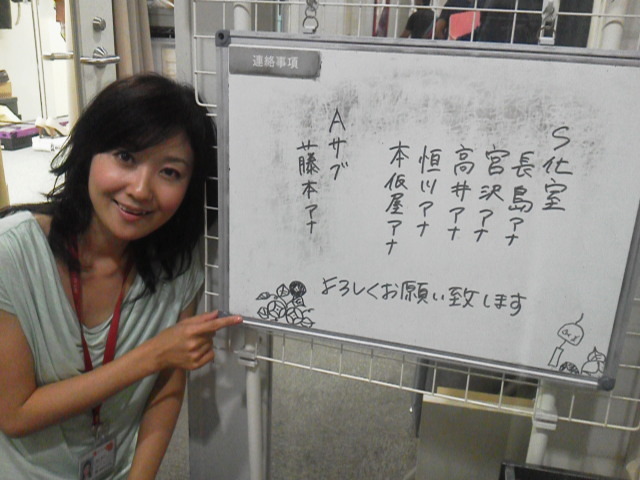 連絡事項
S化室
長島アナ
宮沢アナ
高井アナ
恒川アナ
本仮屋アナ
Aサブ
藤本アナ
よろしくお願い致します